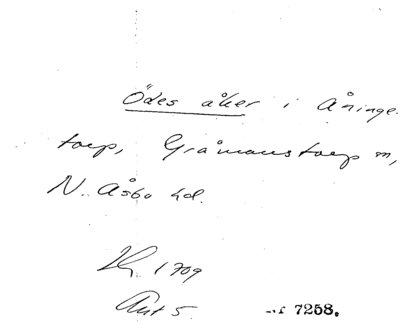 Ödes åker i Åninge-
torp, Gråmanstorp sn,
N. Åsbo hd.
1709
Akt 5.
7258.